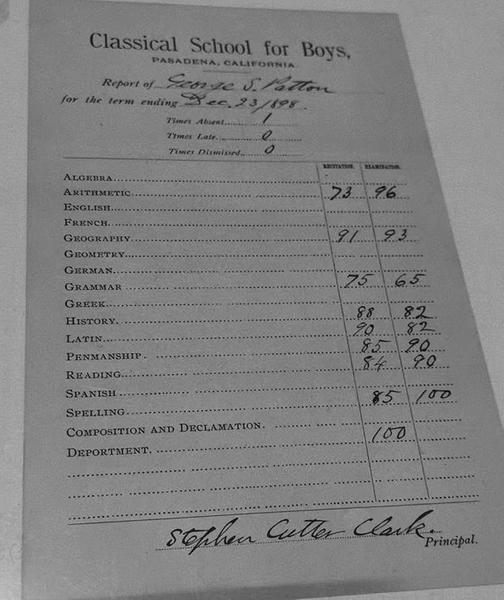 Classical School for Boys,
PASADENA, CALIFORNIA
Report of George S. Patton
for the term ending Dec. 23/1898.
Times Absent 1
Times Late 0
Times Dismissed 0
RECITATION. EXAMINATION.
ALGEBRA
ARITHMETIC 73 96
ENGLISH
FRENCH
GEOGRAPHY 91 93
GEOMETRY
GERMAN
GRAMMAR 75 65
GREEK
HISTORY 88 82
LATIN 90 82
PENMANSHIP 85 90
READING 84 90
SPANISH
SPELLING 85 100
COMPOSITION AND DECLAMATION.
DEPORTMENT. 100
Stephen Cutter Clark
Principal.